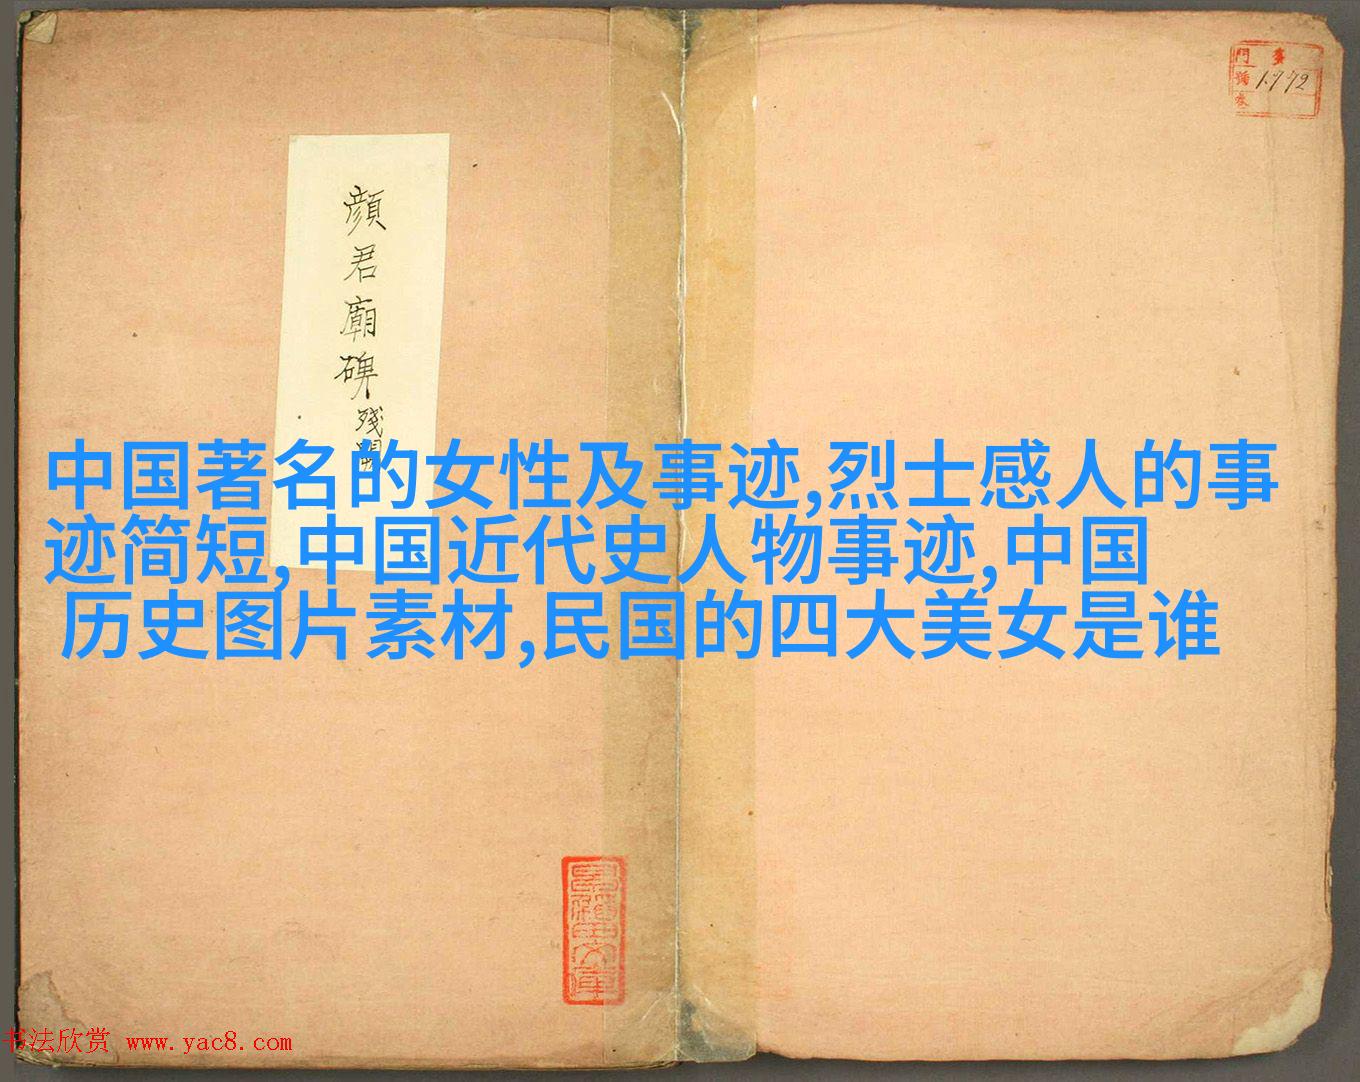 顔君廟碑殘闕
門 多
號 1772
中国著名的女性及事迹,烈士感人的事
迹简短,中国近代史人物事迹,中国
历史图片素材,民国的四大美女是谁
书法欣赏 www.yac8.com